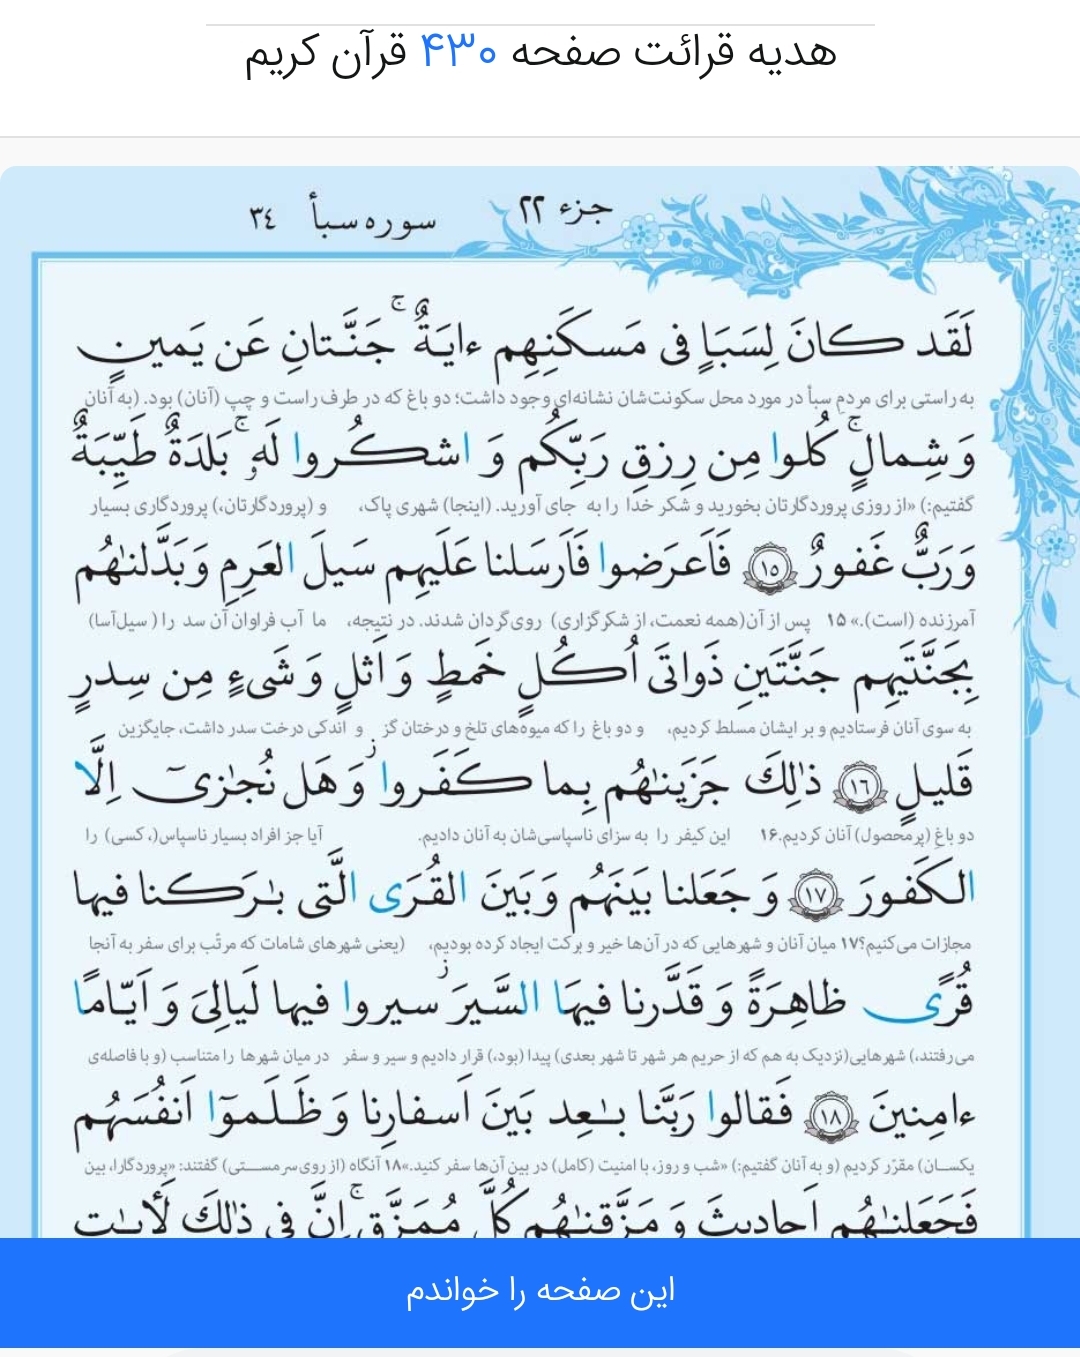 هدیه قرائت صفحه ۴۳۰ قرآن کریم
جزء ٢٢
سوره سبأ ٣٤
لَقَد كانَ لِسَبَاٍ فى مَسكَنِهِم ءايَةٌ ۚ جَنَّتانِ عَن يَمينٍ
به راستی برای مردمِ سبأ در مورد محل سکونت‌شان نشانه‌ای وجود داشت؛ دو باغ که در طرف راست و چپ (آنان) بود. (به آنان
وَ شِمالٍ ۚ كُلوا مِن رِزقِ رَبِّكُم وَ اشكُروا لَهٗ ۚ بَلدَةٌ طَيِّبَةٌ
گفتیم:) «از روزی پروردگارتان بخورید و شکر خدا را به جای آورید. (اینجا) شهری پاک، و (پروردگارتان،) پروردگاری بسیار
وَ رَبٌّ غَفورٌ ١٥ فَاَعرَضوا فَاَرسَلنا عَلَيهِم سَيلَ العَرِمِ وَ بَدَّلنٰهُم
آمرزنده (است).» ۱۵ پس از آن (همه نعمت، از شکرگزاری) روی‌گردان شدند. در نتیجه، ما آب فراوان آن سد را (سیل‌آسا)
بِجَنَّتَيهِم جَنَّتَينِ ذَواتَى اُكُلٍ خَمطٍ وَ اَثلٍ وَ شَىءٍ مِن سِدرٍ
به سوی آنان فرستادیم و بر ایشان مسلط کردیم، و دو باغ را که میوه‌های تلخ و درختان گز و اندکی درخت سدر داشت، جایگزین
قَليلٍ ١٦ ذٰلِكَ جَزَينٰهُم بِما كَفَروا ۖ وَ هَل نُجٰزىٓ اِلَّا
دو باغِ (پرمحصول) آنان کردیم.۱۶ این کیفر را به سزای ناسپاسی‌شان به آنان دادیم. آیا جز افراد بسیار ناسپاس(، کسی) را
الكَفورَ ١٧ وَ جَعَلنا بَينَهُم وَ بَينَ القُرَى الَّتى بٰرَكنا فيها
مجازات می‌کنیم؟۱۷ میان آنان و شهرهایی که در آن‌ها خیر و برکت ایجاد کرده بودیم، (یعنی شهرهای شامات که مرتّب برای سفر به آنجا
قُرًى ظاهِرَةً وَ قَدَّرنا فيهَا السَّيرَ ۖ سيروا فيها لَيالِىَ وَ اَيّامًا
می‌رفتند،) شهرهایی (نزدیک به هم که از حریم هر شهر تا شهر بعدی) پیدا (بود،) قرار دادیم و سیر و سفر در میان شهرها را متناسب (و با فاصله‌ی
ءامِنينَ ١٨ فَقالوا رَبَّنا بٰعِد بَينَ اَسفارِنا وَ ظَلَموٓا اَنفُسَهُم
یکسـان) مقرّر کردیم (و به آنان گفتیم:) «شب و روز، با امنیت (کامل) در بین آن‌ها سفر کنید.»۱۸ آنگاه (از روی سرمســتی) گفتند: «پروردگارا، بین
فَجَعَلنٰهُم اَحاديثَ وَ مَزَّقنٰهُم كُلَّ مُمَزَّقٍ ۚ اِنَّ فى ذٰلِكَ لَأٰيٰتٍ
این صفحه را خواندم